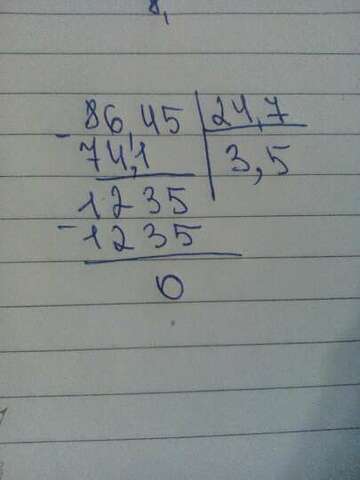 8,
86,45 | 24,7
- 74,1 | 3,5
1235
- 1235
0